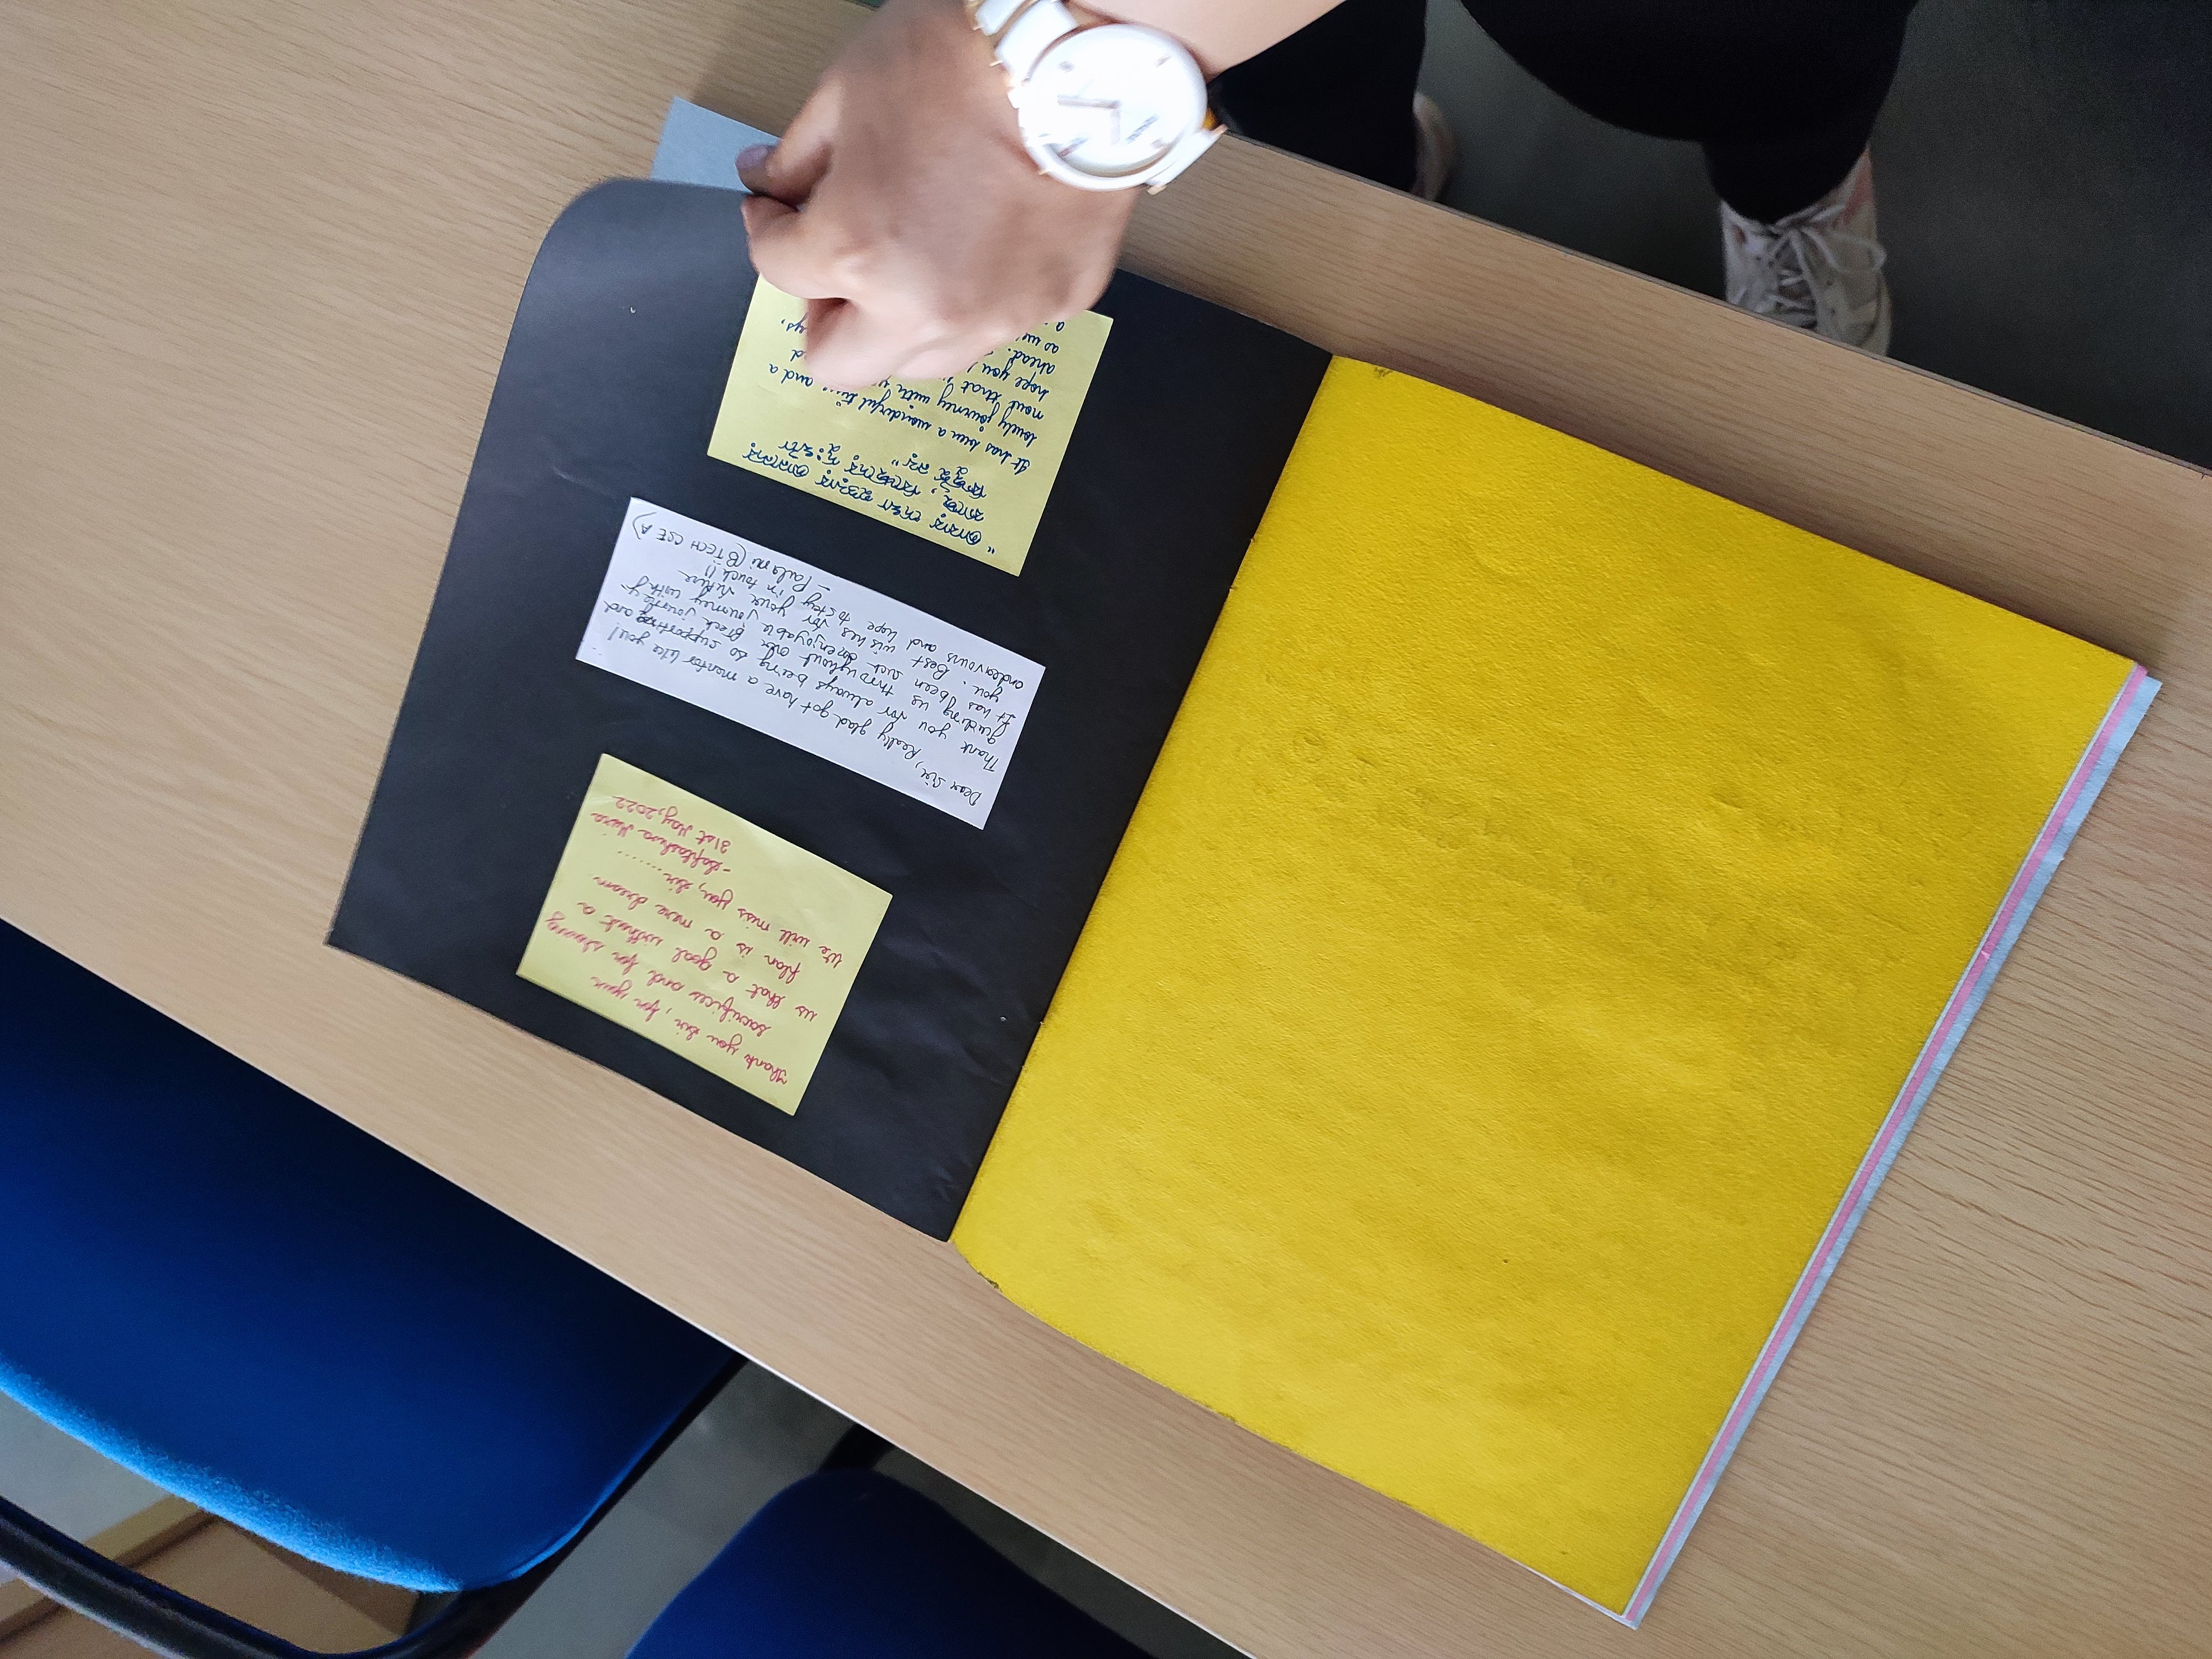 Thank you Sir, for your
sacrifices and for showing
us that a goal without a
plan is a mere dream
We will miss you, Sir.......
-Saptashwa Misra
31st May, 2022
Dear Sir,
Really glad got have a mentor like you!
Thank you for always being so supporting and
guiding us throughout our Btech journey.
It has been such an enjoyable journey with
you. Best wishes for your future
endeavours and hope to stay in touch!!
- Paulomi (BTECH CSE A)
"আবার দেখা হওয়ার আনন্দের
কাছে, বিচ্ছেদের দুঃখটা
কিছুই নয়"
It has been a wonderful time and a
lovely journey with
now that
hope you
ahead.
as
a